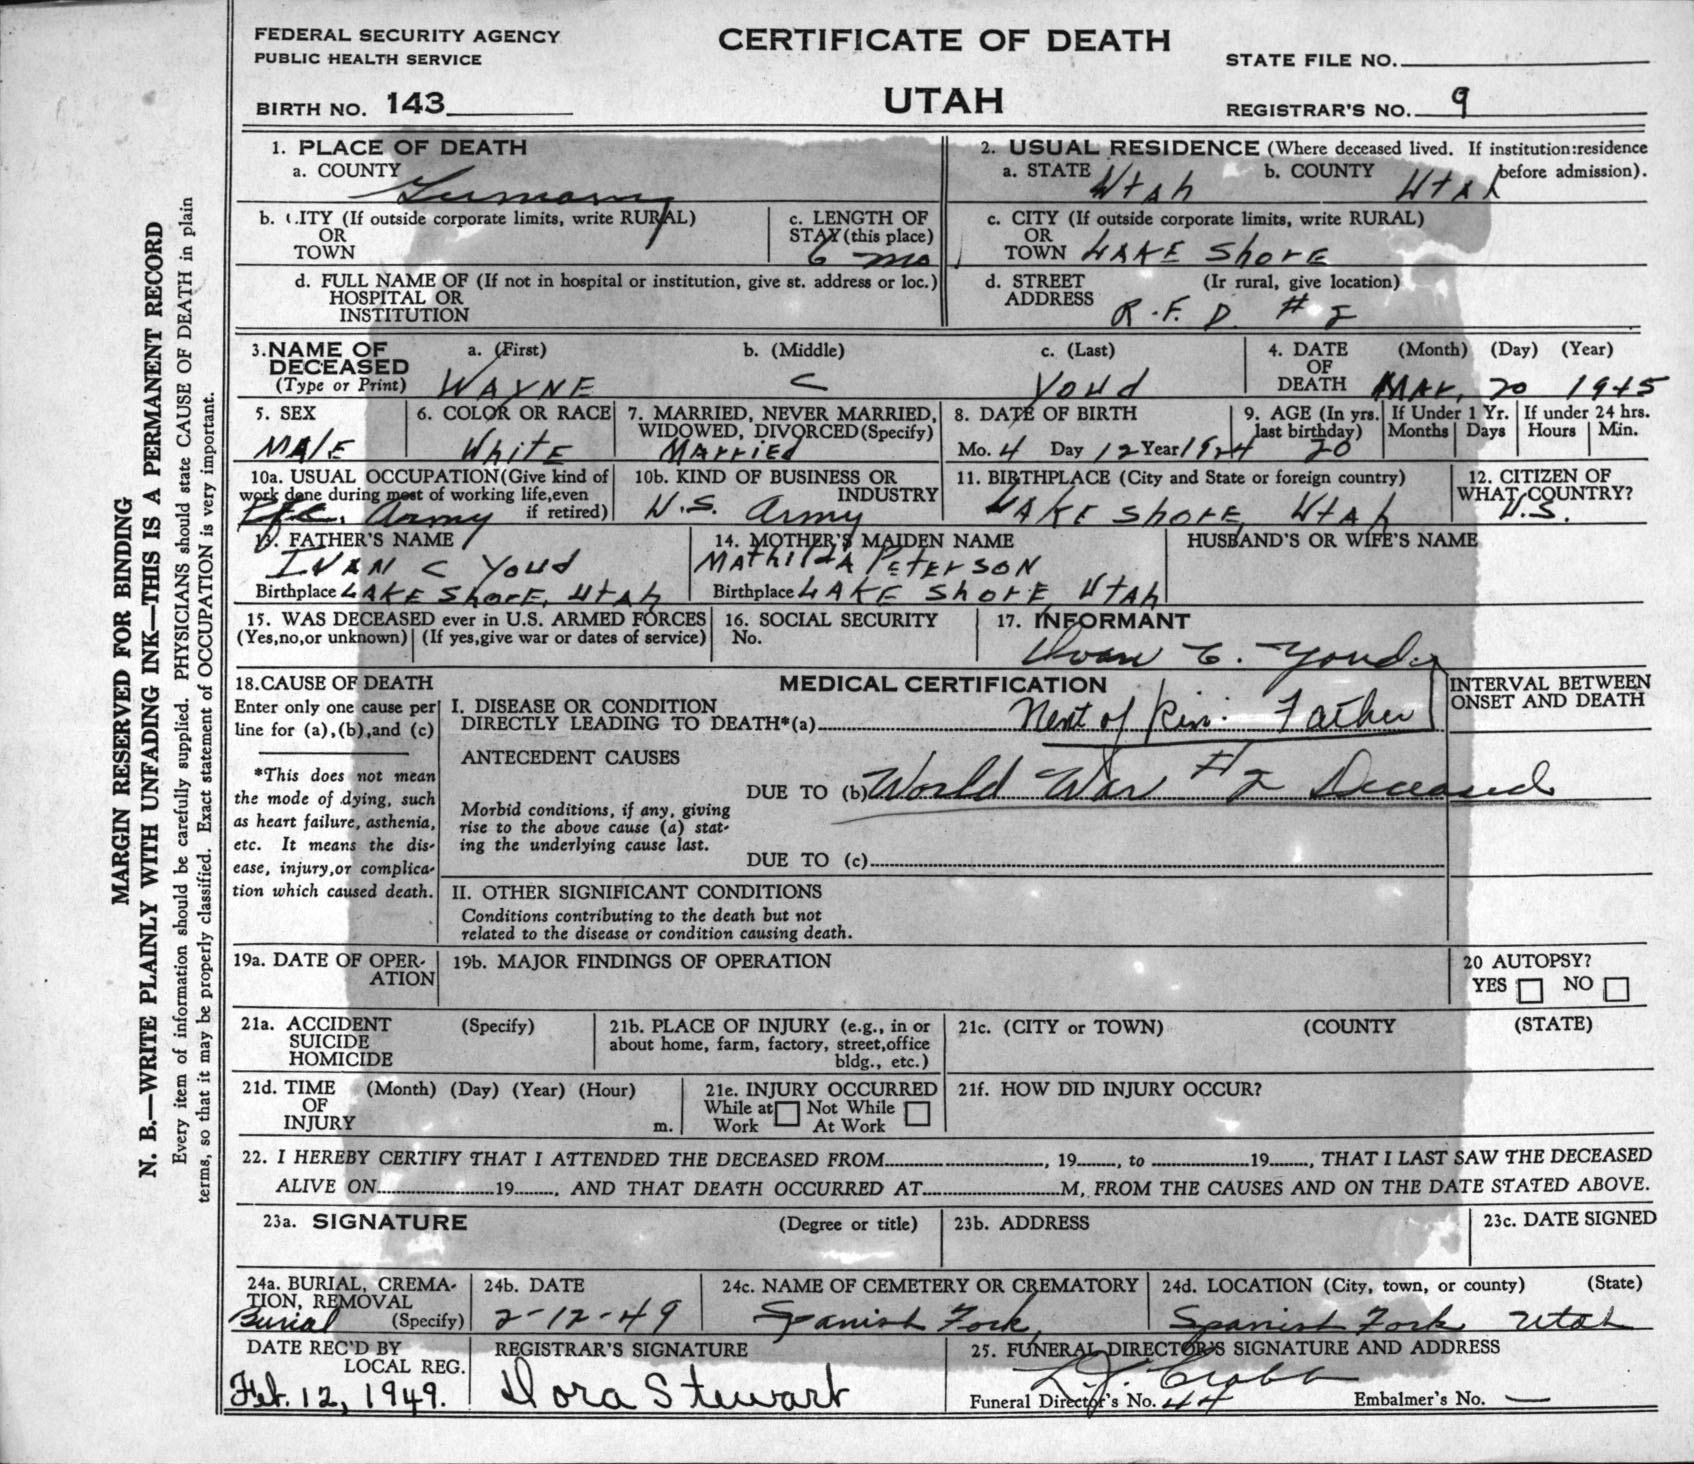 FEDERAL SECURITY AGENCY
PUBLIC HEALTH SERVICE
CERTIFICATE OF DEATH
STATE FILE NO.
BIRTH NO. 143
UTAH
REGISTRAR'S NO. 9
1. PLACE OF DEATH
a. COUNTY
Germany
b. CITY (If outside corporate limits, write RURAL)
OR
TOWN
c. LENGTH OF
STAY (this place)
6 mo
d. FULL NAME OF (If not in hospital or institution, give st. address or loc.)
HOSPITAL OR
INSTITUTION
2. USUAL RESIDENCE (Where deceased lived. If institution:residence
before admission).
a. STATE Utah b. COUNTY Utah
c. CITY (If outside corporate limits, write RURAL)
OR
TOWN LAKE ShorE
d. STREET (Ir rural, give location)
ADDRESS
R.F.D. # 2
3. NAME OF
DECEASED
(Type or Print)
a. (First) b. (Middle) c. (Last)
WAYNE C Youd
4. DATE (Month) (Day) (Year)
OF
DEATH MAr. 20 1945
5. SEX
MAlE
6. COLOR OR RACE
WhitE
7. MARRIED, NEVER MARRIED,
WIDOWED, DIVORCED (Specify)
MArriEd
8. DATE OF BIRTH
Mo. 4 Day 12 Year 1924
9. AGE (In yrs.
last birthday)
20
If Under 1 Yr.
Months Days
If under 24 hrs.
Hours Min.
10a. USUAL OCCUPATION (Give kind of
work done during most of working life, even
if retired)
Pfc. Army
10b. KIND OF BUSINESS OR
INDUSTRY
U.S. Army
11. BIRTHPLACE (City and State or foreign country)
LAKE ShorE, UtAh
12. CITIZEN OF
WHAT COUNTRY?
U.S.
13. FATHER'S NAME
IVAN C Youd
Birthplace LAKE ShorE, UtAh
14. MOTHER'S MAIDEN NAME
MAthildA PEtErsoN
Birthplace LAKE ShorE UtAh
HUSBAND'S OR WIFE'S NAME
15. WAS DECEASED ever in U.S. ARMED FORCES
(Yes,no,or unknown) (If yes,give war or dates of service)
16. SOCIAL SECURITY
No.
17. INFORMANT
Ivan C. Youd
18. CAUSE OF DEATH
Enter only one cause per
line for (a),(b),and (c)
*This does not mean
the mode of dying, such
as heart failure, asthenia,
etc. It means the dis-
ease, injury,or complica-
tion which caused death.
MEDICAL CERTIFICATION
INTERVAL BETWEEN
ONSET AND DEATH
I. DISEASE OR CONDITION
DIRECTLY LEADING TO DEATH*(a) Next of Kin: Father
ANTECEDENT CAUSES
DUE TO (b) World War #2 Deceased
Morbid conditions, if any, giving
rise to the above cause (a) stat-
ing the underlying cause last.
DUE TO (c)
II. OTHER SIGNIFICANT CONDITIONS
Conditions contributing to the death but not
related to the disease or condition causing death.
19a. DATE OF OPER-
ATION
19b. MAJOR FINDINGS OF OPERATION
20 AUTOPSY?
YES NO
21a. ACCIDENT (Specify)
SUICIDE
HOMICIDE
21b. PLACE OF INJURY (e.g., in or
about home, farm, factory, street,office
bldg., etc.)
21c. (CITY or TOWN) (COUNTY (STATE)
21d. TIME (Month) (Day) (Year) (Hour)
OF
INJURY m.
21e. INJURY OCCURRED
While at Not While
Work At Work
21f. HOW DID INJURY OCCUR?
22. I HEREBY CERTIFY THAT I ATTENDED THE DECEASED FROM , 19 , to 19 , THAT I LAST SAW THE DECEASED
ALIVE ON 19 , AND THAT DEATH OCCURRED AT M, FROM THE CAUSES AND ON THE DATE STATED ABOVE.
23a. SIGNATURE (Degree or title)
23b. ADDRESS
23c. DATE SIGNED
24a. BURIAL, CREMA-
TION, REMOVAL
(Specify)
Burial
24b. DATE
2-12-49
24c. NAME OF CEMETERY OR CREMATORY
Spanish Fork,
24d. LOCATION (City, town, or county) (State)
Spanish Fork Utah
DATE REC'D BY
LOCAL REG.
Feb. 12, 1949.
REGISTRAR'S SIGNATURE
Dora Stewart
25. FUNERAL DIRECTOR'S SIGNATURE AND ADDRESS
Funeral Director's No. 44 Embalmer's No. —
MARGIN RESERVED FOR BINDING
N. B.—WRITE PLAINLY WITH UNFADING INK—THIS IS A PERMANENT RECORD
Every item of information should be carefully supplied. PHYSICIANS should state CAUSE OF DEATH in plain
terms, so that it may be properly classified. Exact statement of OCCUPATION is very important.